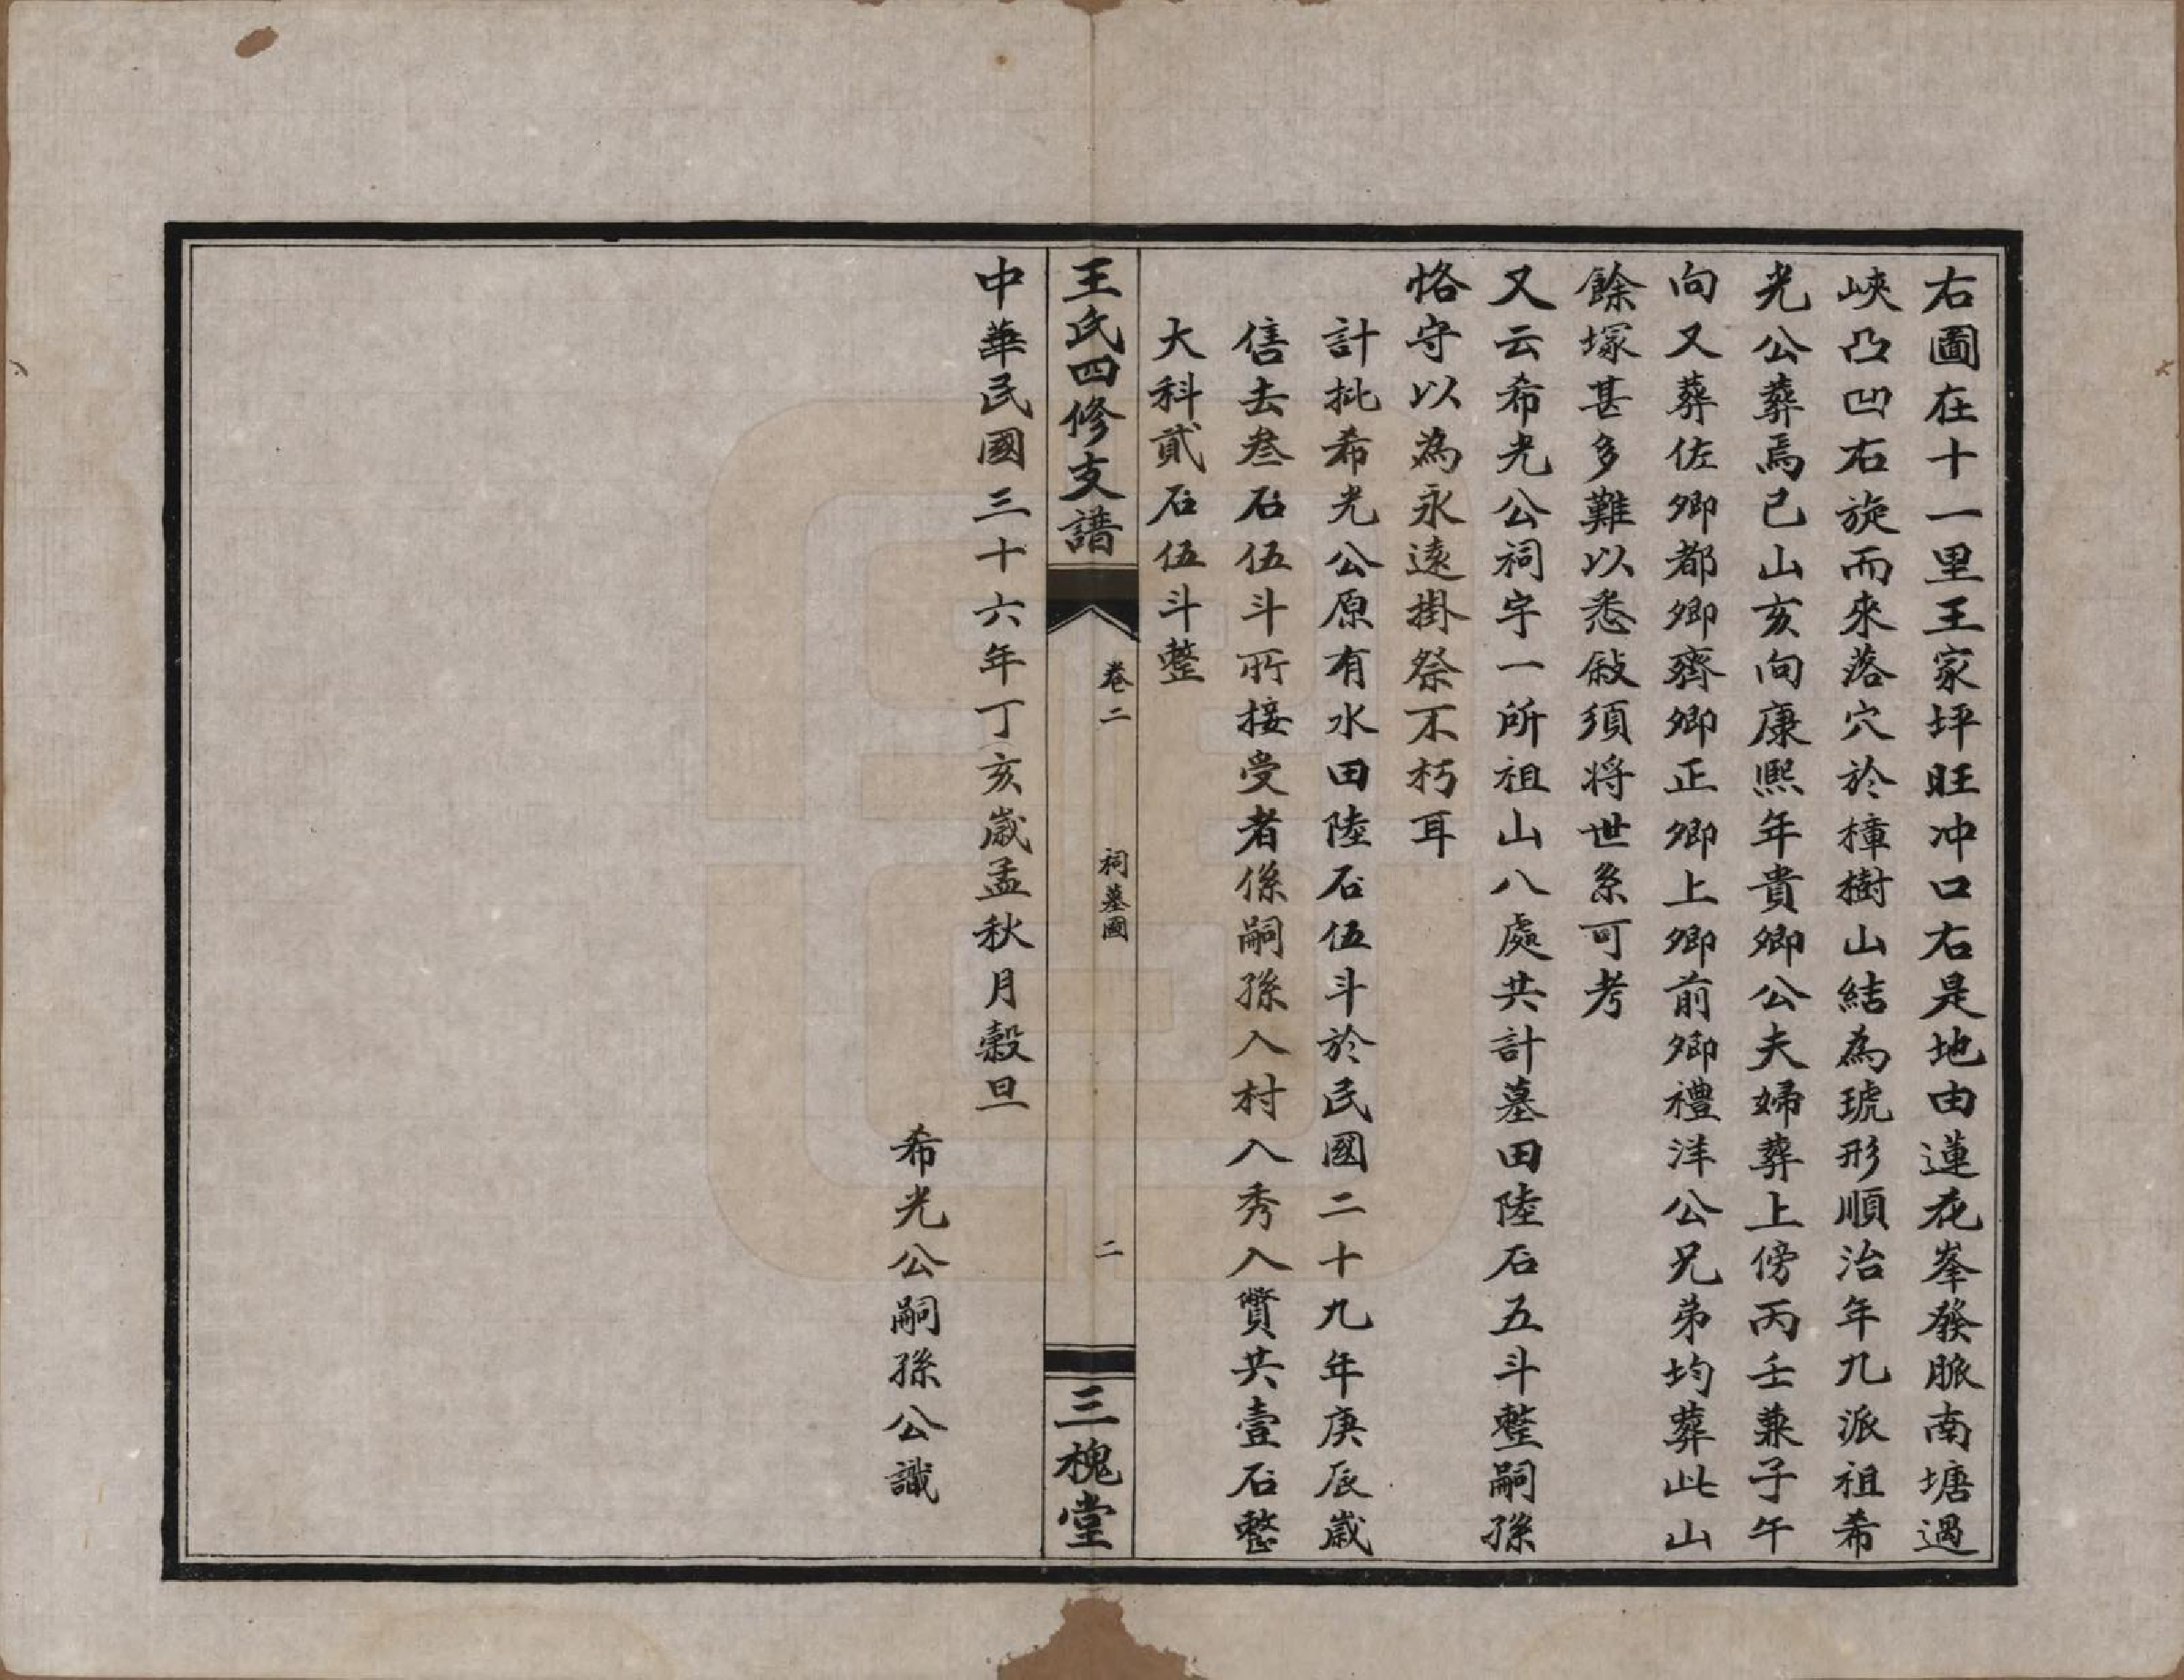 右圖在十一里王家坪旺冲口右是地由蓮花峯發脈南塘過
峽凸凹右旋而來落穴於樟樹山結為琥形順治年九派祖希
光公葬焉已山亥向康熙年貴卿公夫婦葬上傍丙壬兼子午
向又葬佐卿都卿齊卿正卿上卿前卿禮洋公兄弟均葬此山
餘塚甚多難以悉敍須將世系可考
又云希光公祠宇一所祖山八處共計墓田陸石五斗整嗣孫
恪守以為永遠掛祭不朽耳
計批希光公原有水田陸石伍斗於民國二十九年庚辰歲
售去叁石伍斗所接受者係嗣孫入村入秀入贊共壹石整
大科貳石伍斗整
王氏四修支譜
卷二
祠墓圖
二
三槐堂
中華民國三十六年丁亥歲孟秋月穀旦
希光公嗣孫公識